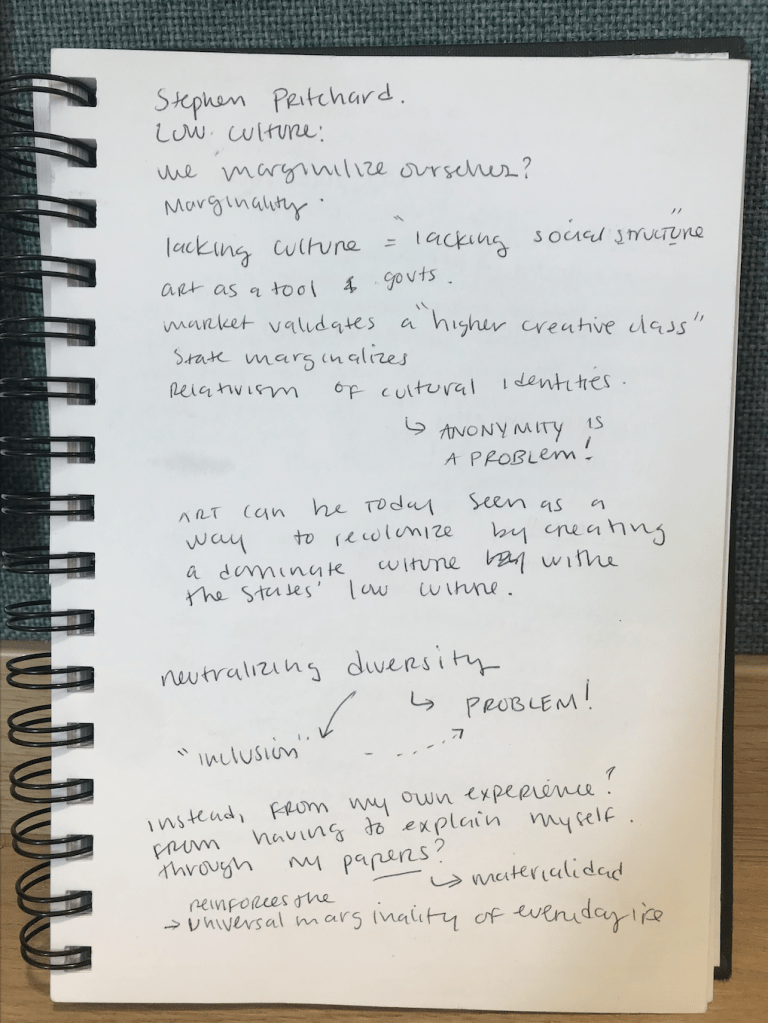 Stephen Pritchard.
Low culture:
we marginilize ourselves?
Marginality.
lacking culture = "lacking social structure"
art as a tool & govts.
market validates a "higher creative class"
State marginalizes
Relativism of cultural identities.
↳ ANONYMITY IS
A PROBLEM!
ART can be today seen as a
way to recolonize by creating
a dominate culture withe
the states' low culture.
neutralizing diversity
↳ PROBLEM!
"inclusion"
instead, from my own experience?
from having to explain myself.
through my papers?
↳ materialidad
reinforces the
→ universal marginality of everyday life